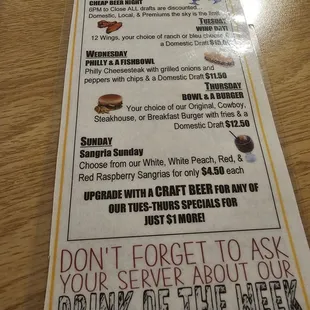 CHEAP BEER NIGHT
6PM to Close ALL drafts are discounted,
Domestic, Local, & Premiums the sky is the
TUESDAY
WING DAY!
12 Wings, your choice of ranch or bleu cheese
a Domestic Draft
WEDNESDAY
PHILLY & A FISHBOWL
Philly Cheesesteak with grilled onions and
peppers with chips & a Domestic Draft $11.50
THURSDAY
BOWL & A BURGER
Your choice of our Original, Cowboy,
Steakhouse, or Breakfast Burger with fries & a
Domestic Draft $12.50
SUNDAY
Sangria Sunday
Choose from our White, White Peach, Red, &
Red Raspberry Sangrias for only $4.50 each
UPGRADE WITH A CRAFT BEER FOR ANY OF
OUR TUES-THURS SPECIALS FOR
JUST $1 MORE!
DON'T FORGET TO ASK
YOUR SERVER ABOUT OUR
DRINK OF THE WEEK